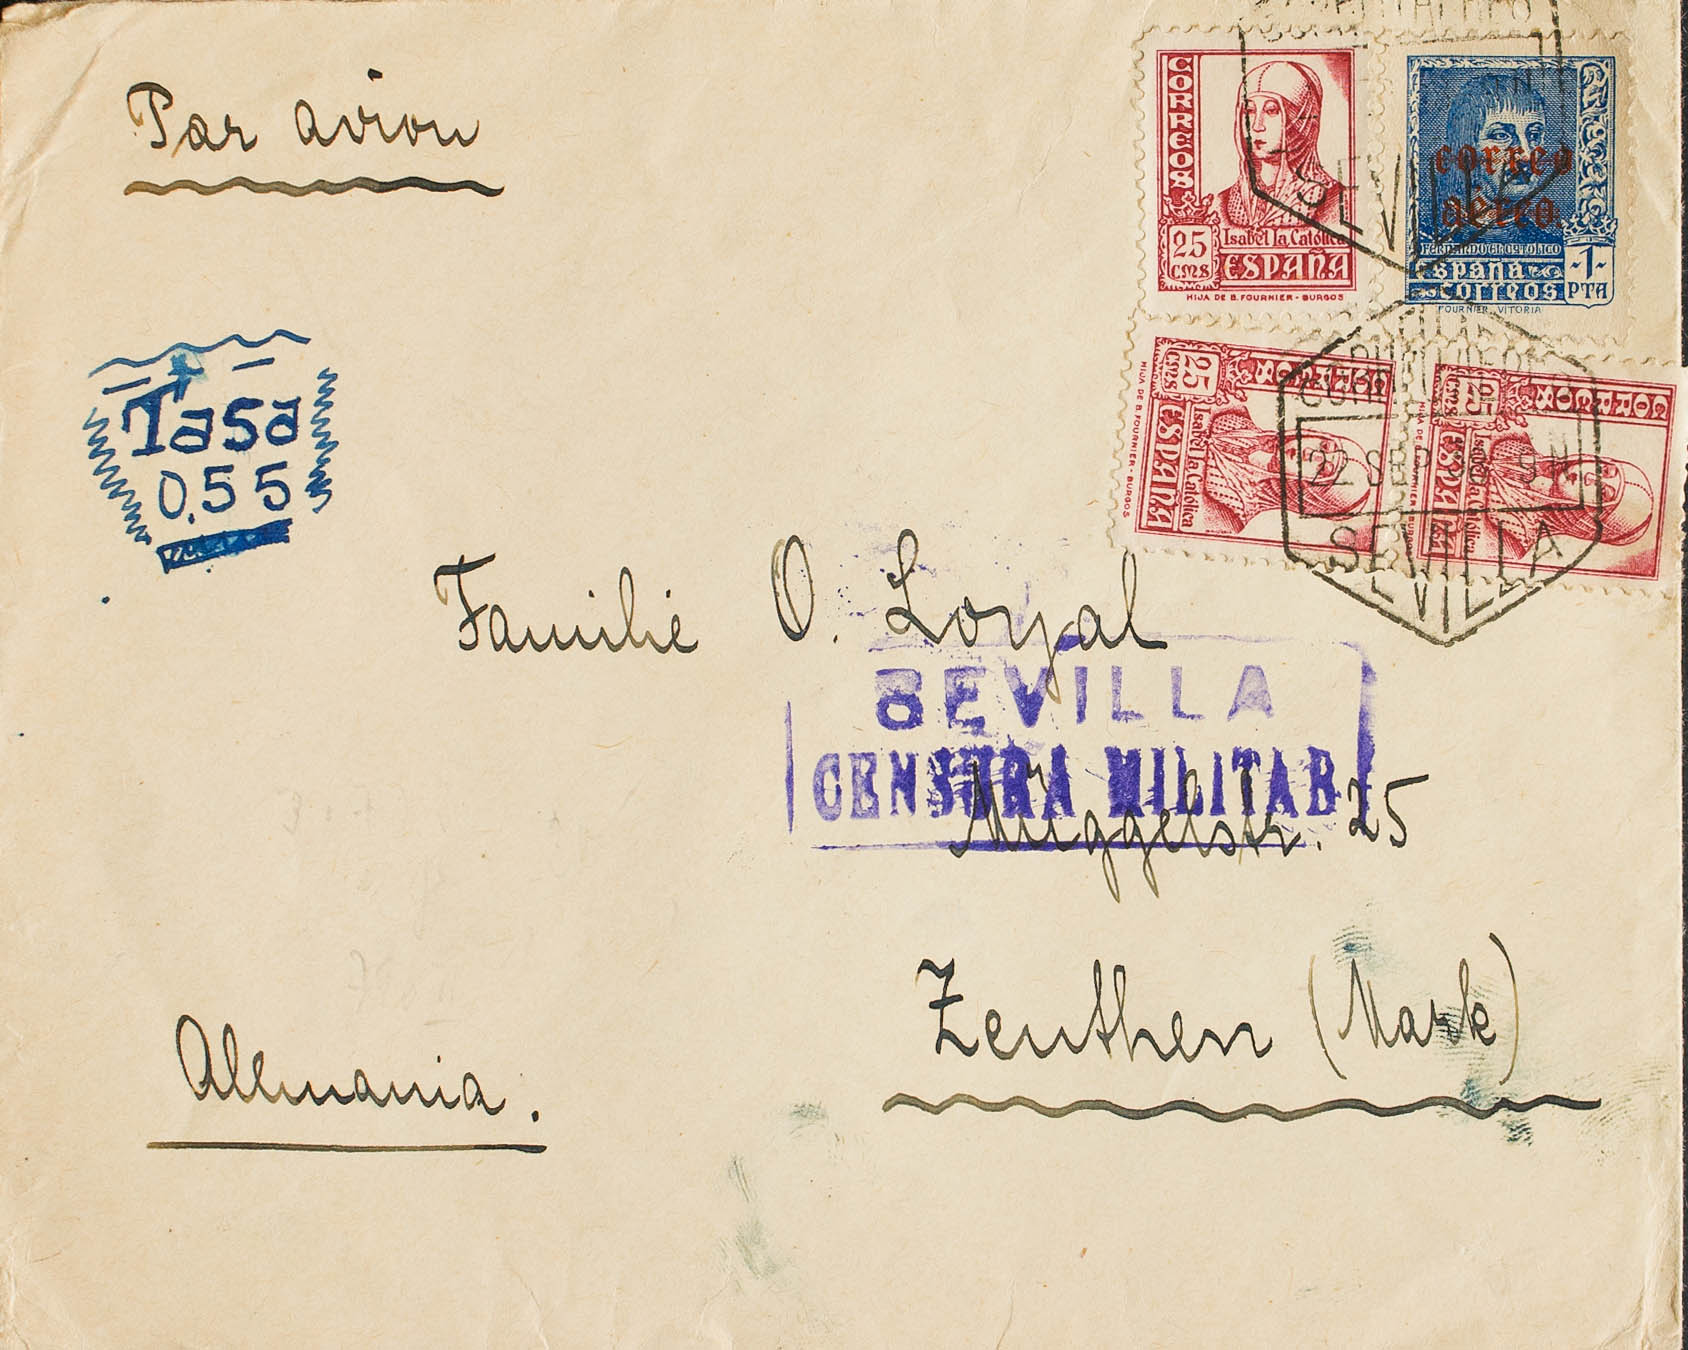 Par avion
CORREOS
25
CMS
Isabel la Católica
ESPAÑA
HIJA DE B. FOURNIER - BURGOS
correo
aéreo.
FERNANDO EL CATOLICO
españa
correos
-1-
PTA
FOURNIER. VITORIA
SEVILLA
25
CMS
CORREOS
Isabel la Católica
ESPAÑA
HIJA DE B. FOURNIER - BURGOS
25
CMS
CORREOS
Isabel la Católica
ESPAÑA
HIJA DE B. FOURNIER - BURGOS
22 SEP
SEVILLA
Tasa
0.55
Familie O. Loryal
SEVILLA
CENSURA MILITAR
Müggelstr. 25
Zeuthen (Mark)
Allemania.